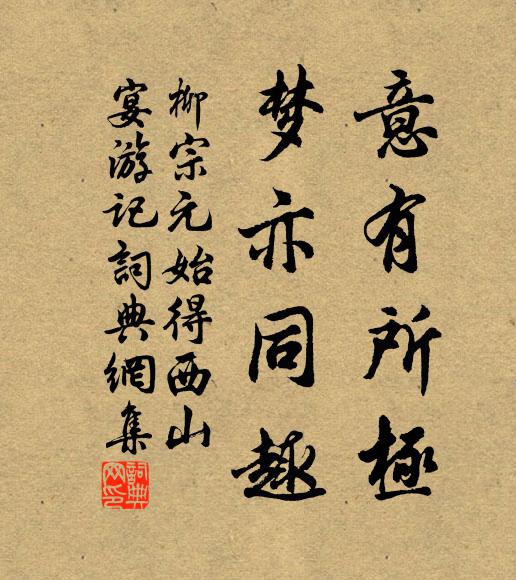 意有所极
梦亦同趣
柳宗元始得西山
宴游记詞典網集
詞典网印